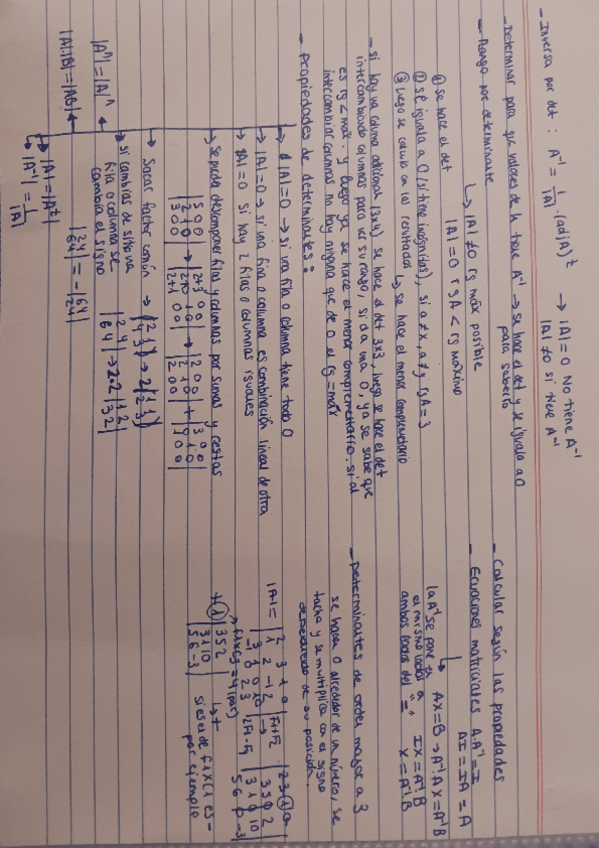 - Inversa por det : A⁻¹ = 1/|A| · (adj A)ᵗ → |A| = 0 No tiene A⁻¹
|A| ≠ 0 si tiene A⁻¹
- Determinar para que valores de k tiene A⁻¹ → se hace el det y se iguala a 0
para saberlo
- Rango por determinante
↳ |A| ≠ 0 rg máx posible
|A| = 0 rg A < rg máximo
① Se hace el det
② se iguala a 0 (si tiene incógnitas), si a ≠ x, a ≠ y rg A = 3
③ Luego se calcula con los resultados ↳ se hace el menor complementario
- si hay una columna adicional (3x4) se hace el det 3x3, luego se hace el det
intercambiando columnas para ver su rango, si da una 0, ya se sabe que
es rg < max. y luego ya se hace el menor complementario. si al
intercambiar columnas no hay ninguna que de 0 el rg = max
- Propiedades de determinantes:
→ |A| = 0 → si una fila o columna tiene todo 0
→ |A| = 0 → si una fila o columna es combinación lineal de otra
→ |A| = 0 si hay 2 filas o columnas iguales
→ se puede descomponer filas y columnas por sumas y restas
→ Sacar factor común →
→ si cambias de sitio una
fila o columna se
cambia el signo
|2 4|
|6 4| = - |6 4|
|2 4|
→ |A| = |Aᵗ|
→ |A⁻¹| = 1/|A|
|Aⁿ| = |A|ⁿ ←
|A|·|B| = |AB| ←
- Calcular según las propiedades
- Ecuaciones matriciales A·A⁻¹ = I
AI = IA = A
AX = B → A⁻¹·AX = A⁻¹B
la A⁻¹ se pone en
el mismo lado a
ambos lados del "="
IX = A⁻¹·B
X = A⁻¹·B
- Determinantes de orden mayor a 3
se hacen 0 alrededor de un número, se
tacha y se multiplica con el signo
dependiendo de su posición.
|A| =
F1+F2
2F1-F3
→ f1xc3 = 4 (par)
+ ① |3 5 2|
|3 1 10|
|5 6 -3|
↳ +
si es el de f1xc1 es -
por ejemplo